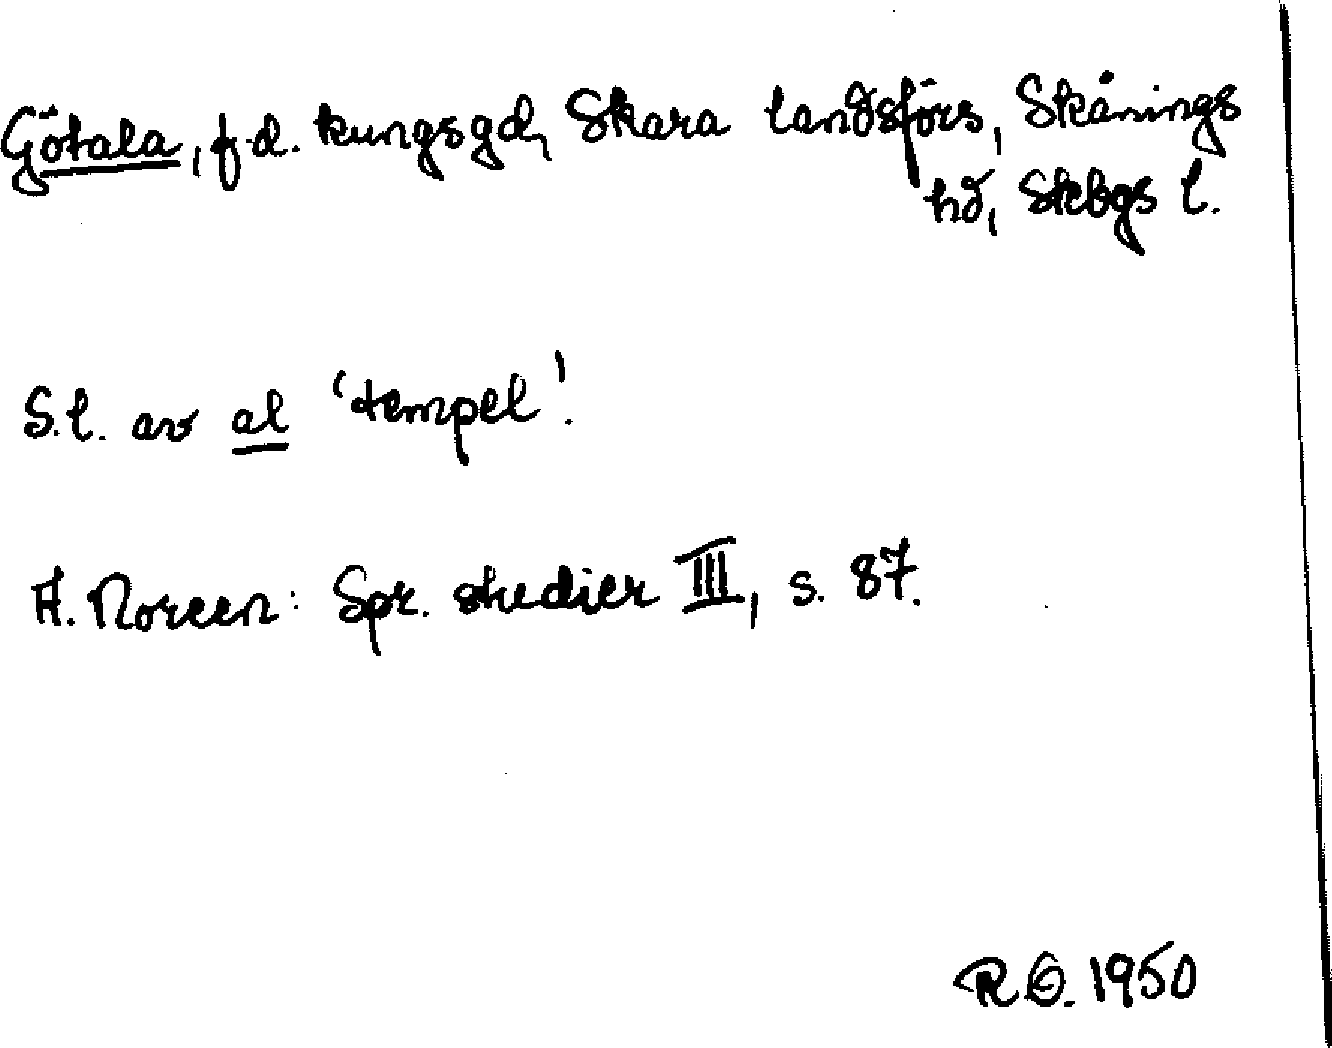 Götala, f.d. kungsgd, Skara landsförs, Skånings
hd, Skbgs l.
S.l. av al 'tempel'.
A. Noreen: Spr. studier III, s. 87.
R.Ö. 1950